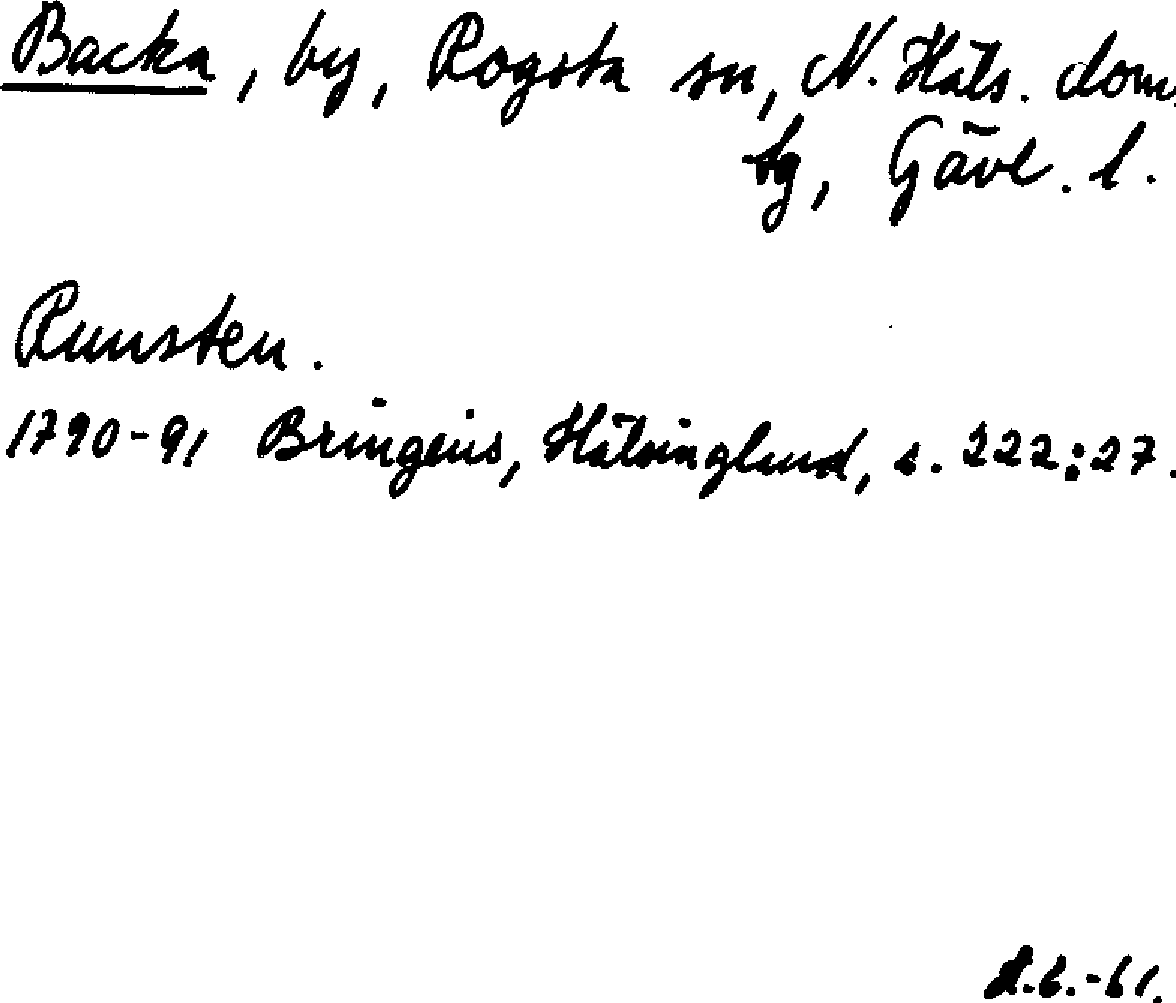 Backa, by, Rogsta sn, N. Häls. dom.
sg, Gävl. l.
Runsten.
1790-91 Bringéus, Hälsingland, s. 222:27.